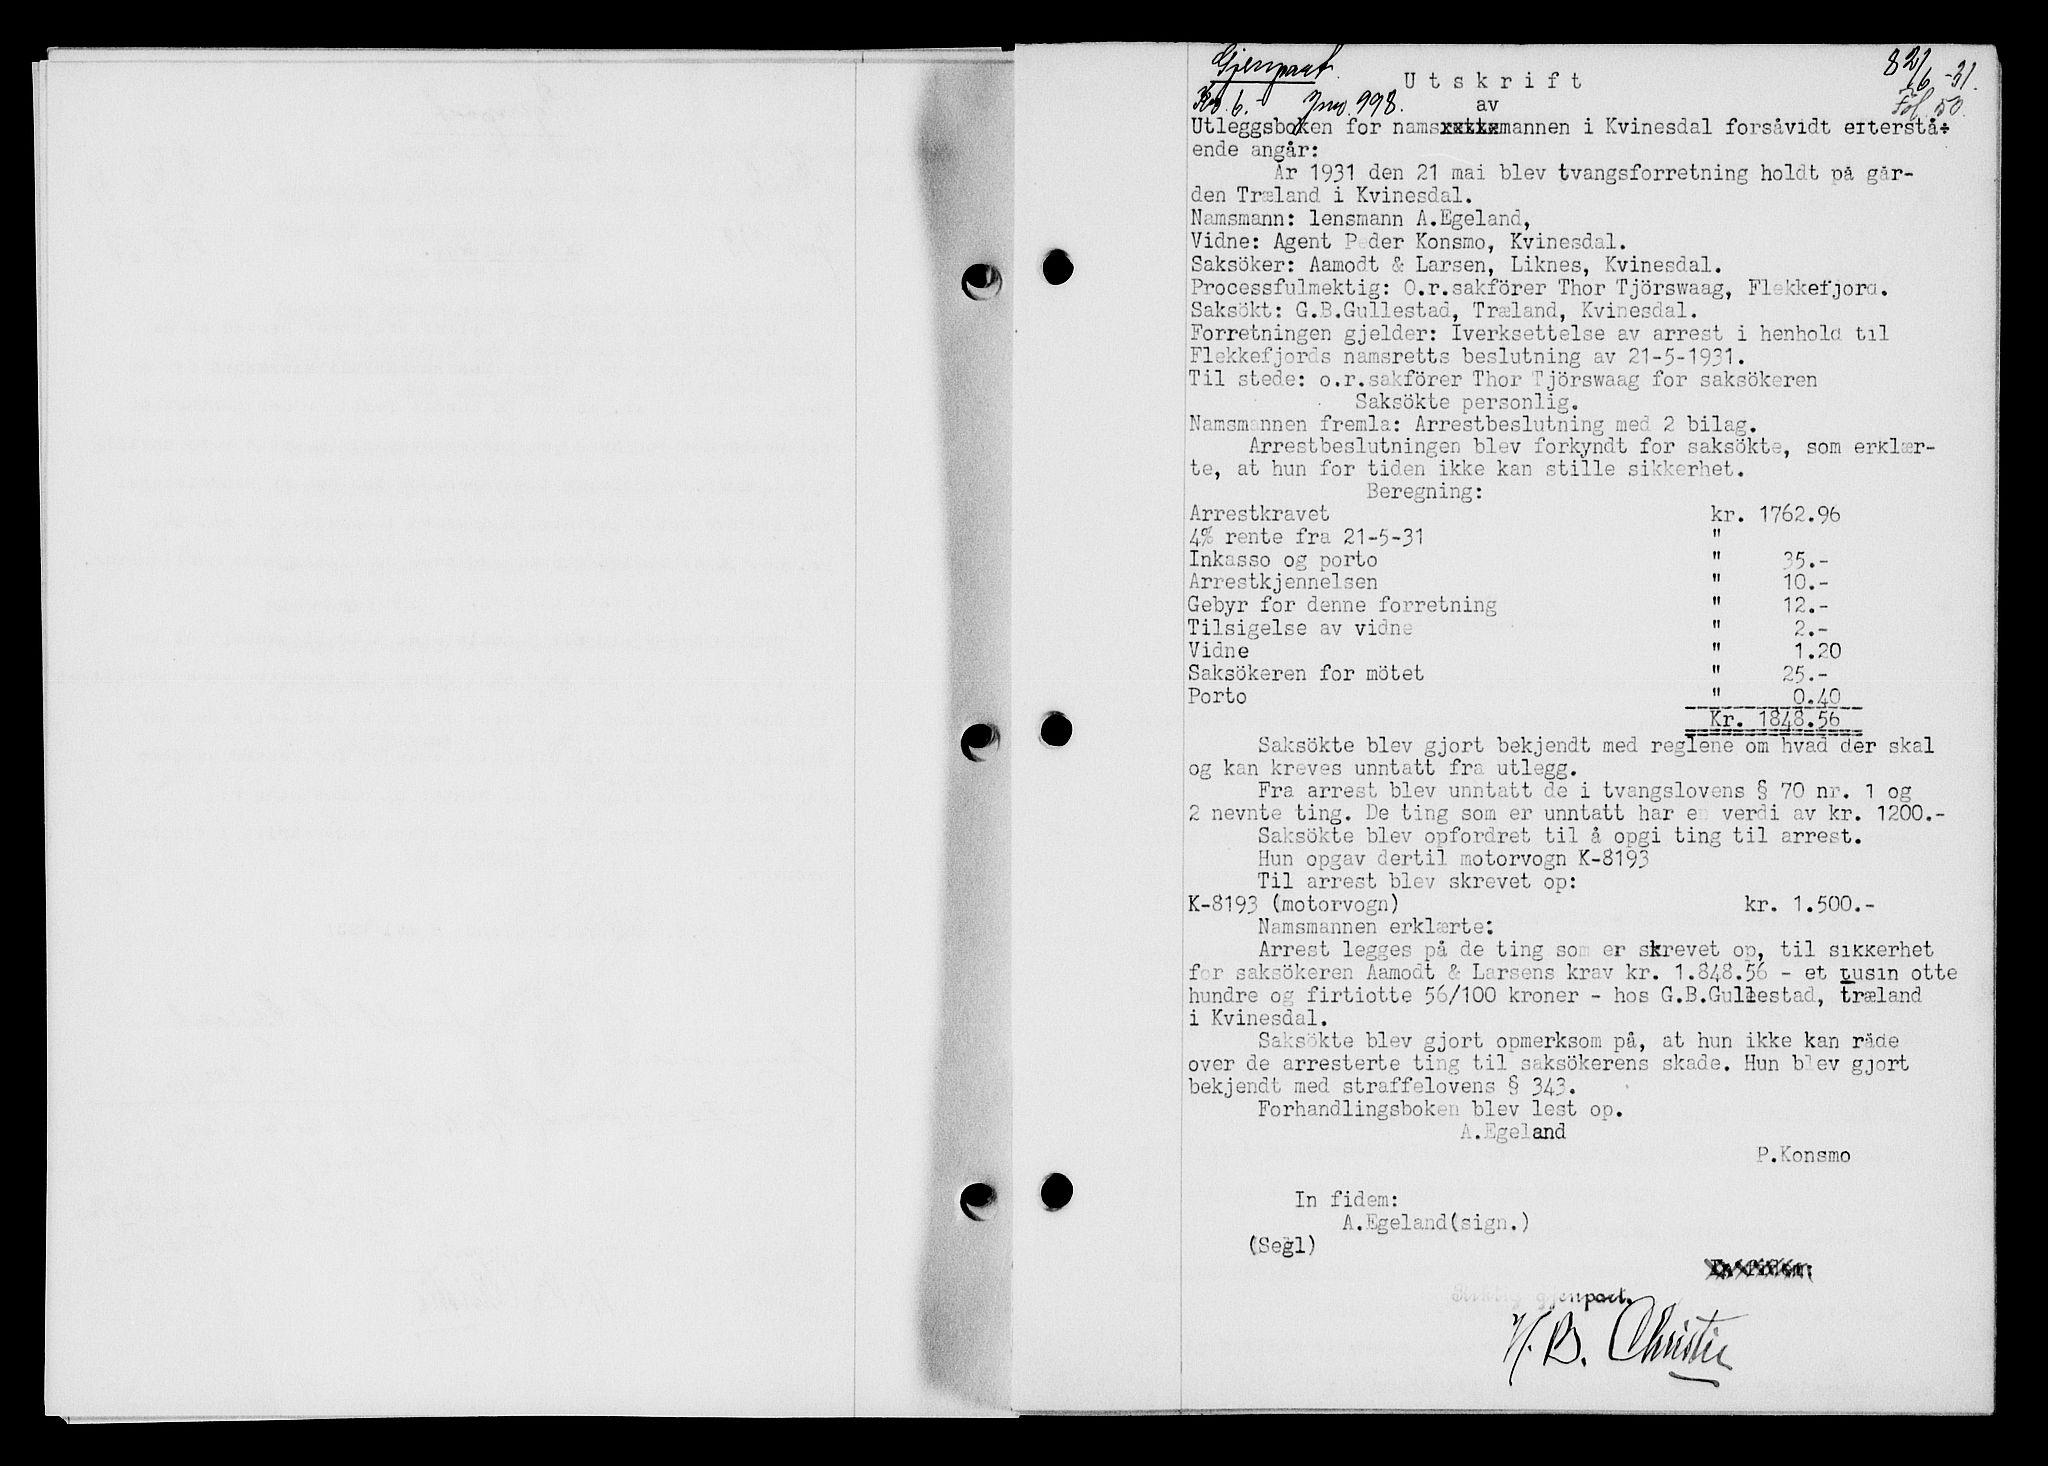 Gjenpart. 82/6-31.
U t s k r i f t
Kr. 6.- Jnr. 998. av Fol. 50.
Utleggsboken for namsxxxxxmannen i Kvinesdal forsåvidt efterstå-
ende angår:
År 1931 den 21 mai blev tvangsforretning holdt på går-
den Træland i Kvinesdal.
Namsmann: lensmann A.Egeland,
Vidne: Agent Peder Konsmo, Kvinesdal.
Saksöker: Aamodt & Larsen, Liknes, Kvinesdal.
Processfulmektig: O.r.sakförer Thor Tjörswaag, Flekkefjord.
Saksökt: G.B.Gullestad, Træland, Kvinesdal.
Forretningen gjelder: Iverksettelse av arrest i henhold til
Flekkefjords namsretts beslutning av 21-5-1931.
Til stede: o.r.sakförer Thor Tjörswaag for saksökeren
Saksökte personlig.
Namsmannen fremla: Arrestbeslutning med 2 bilag.
Arrestbeslutningen blev forkyndt for saksökte, som erklær-
te, at hun for tiden ikke kan stille sikkerhet.
Beregning:
Arrestkravet kr. 1762.96
4% rente fra 21-5-31 "
Inkasso og porto " 35.-
Arrestkjennelsen " 10.-
Gebyr for denne forretning " 12.-
Tilsigelse av vidne " 2.-
Vidne " 1.20
Saksökeren for mötet " 25.-
Porto " 0.40
Kr. 1848.56
Saksökte blev gjort bekjendt med reglene om hvad der skal
og kan kreves unntatt fra utlegg.
Fra arrest blev unntatt de i tvangslovens § 70 nr. 1 og
2 nevnte ting. De ting som er unntatt har en verdi av kr. 1200.-
Saksökte blev opfordret til å opgi ting til arrest.
Hun opgav dertil motorvogn K-8193
Til arrest blev skrevet op:
K-8193 (motorvogn) kr. 1.500.-
Namsmannen erklærte:
Arrest legges på de ting som er skrevet op, til sikkerhet
for saksökeren Aamodt & Larsens krav kr. 1.848.56 - et tusin otte
hundre og firtiotte 56/100 kroner - hos G.B.Gullestad, træland
i Kvinesdal.
Saksökte blev gjort opmerksom på, at hun ikke kan råde
over de arresterte ting til saksökerens skade. Hun blev gjort
bekjendt med straffelovens § 343.
Forhandlingsboken blev lest op.
A.Egeland
P.Konsmo
In fidem:
A.Egeland(sign.)
(Segl)
In fidem:
Riktig gjenpart.
H. B. Christie